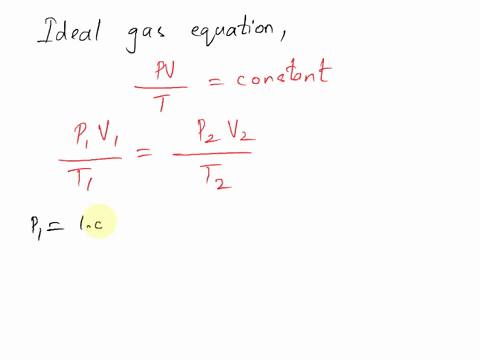 Ideal gas equation,
PV/T = constant
P₁ V₁ / T₁ = P₂ V₂ / T₂
P₁ = 1.c